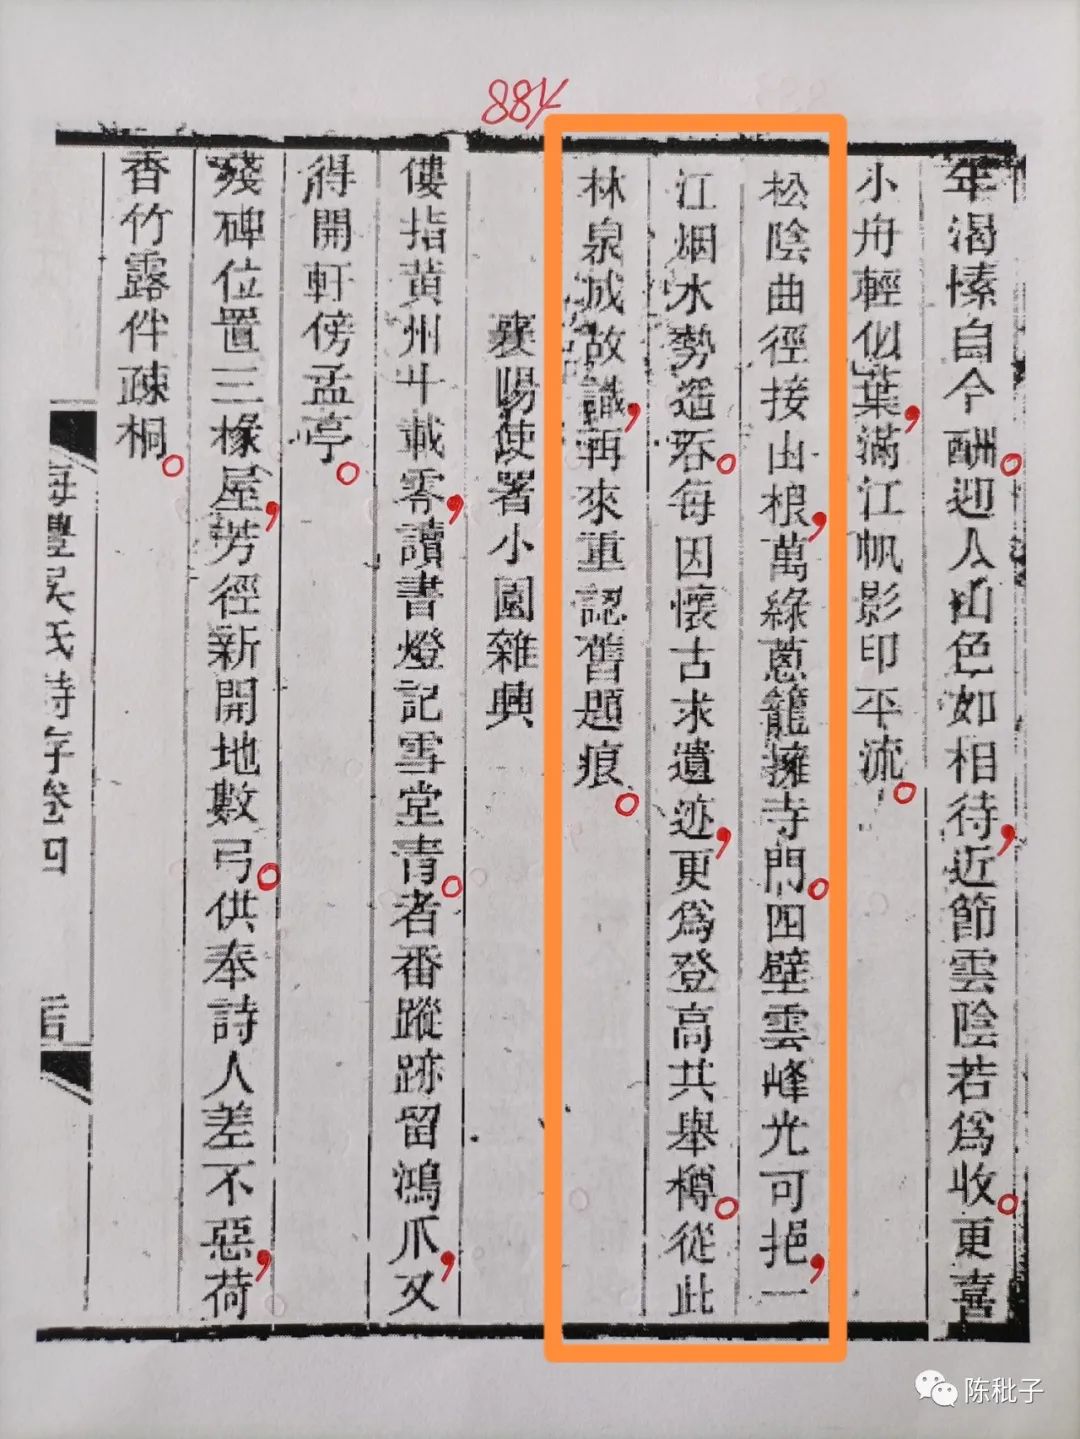 884
年渴愫自今酬。迎人山色如相待，近節雲陰若為收。更喜
小舟輕似葉，滿江帆影印平流。
松陰曲徑接山根，萬綠蔥籠擁寺門。四壁雲峰光可挹，一
江烟水勢遥吞。每因懷古求遺迹，更為登高共舉樽。從此
林泉成故識，再來重認舊題痕。
襄陽使署小園雜興
僂指黃州廿載零，讀書燈記雪堂青。者番蹤跡留鴻爪，又
得開軒傍孟亭。
殘碑位置三椽屋，芳徑新開地數弓。供奉詩人差不惡，荷
香竹露伴疎桐。
海豐吳氏詩存卷四
陈秕子